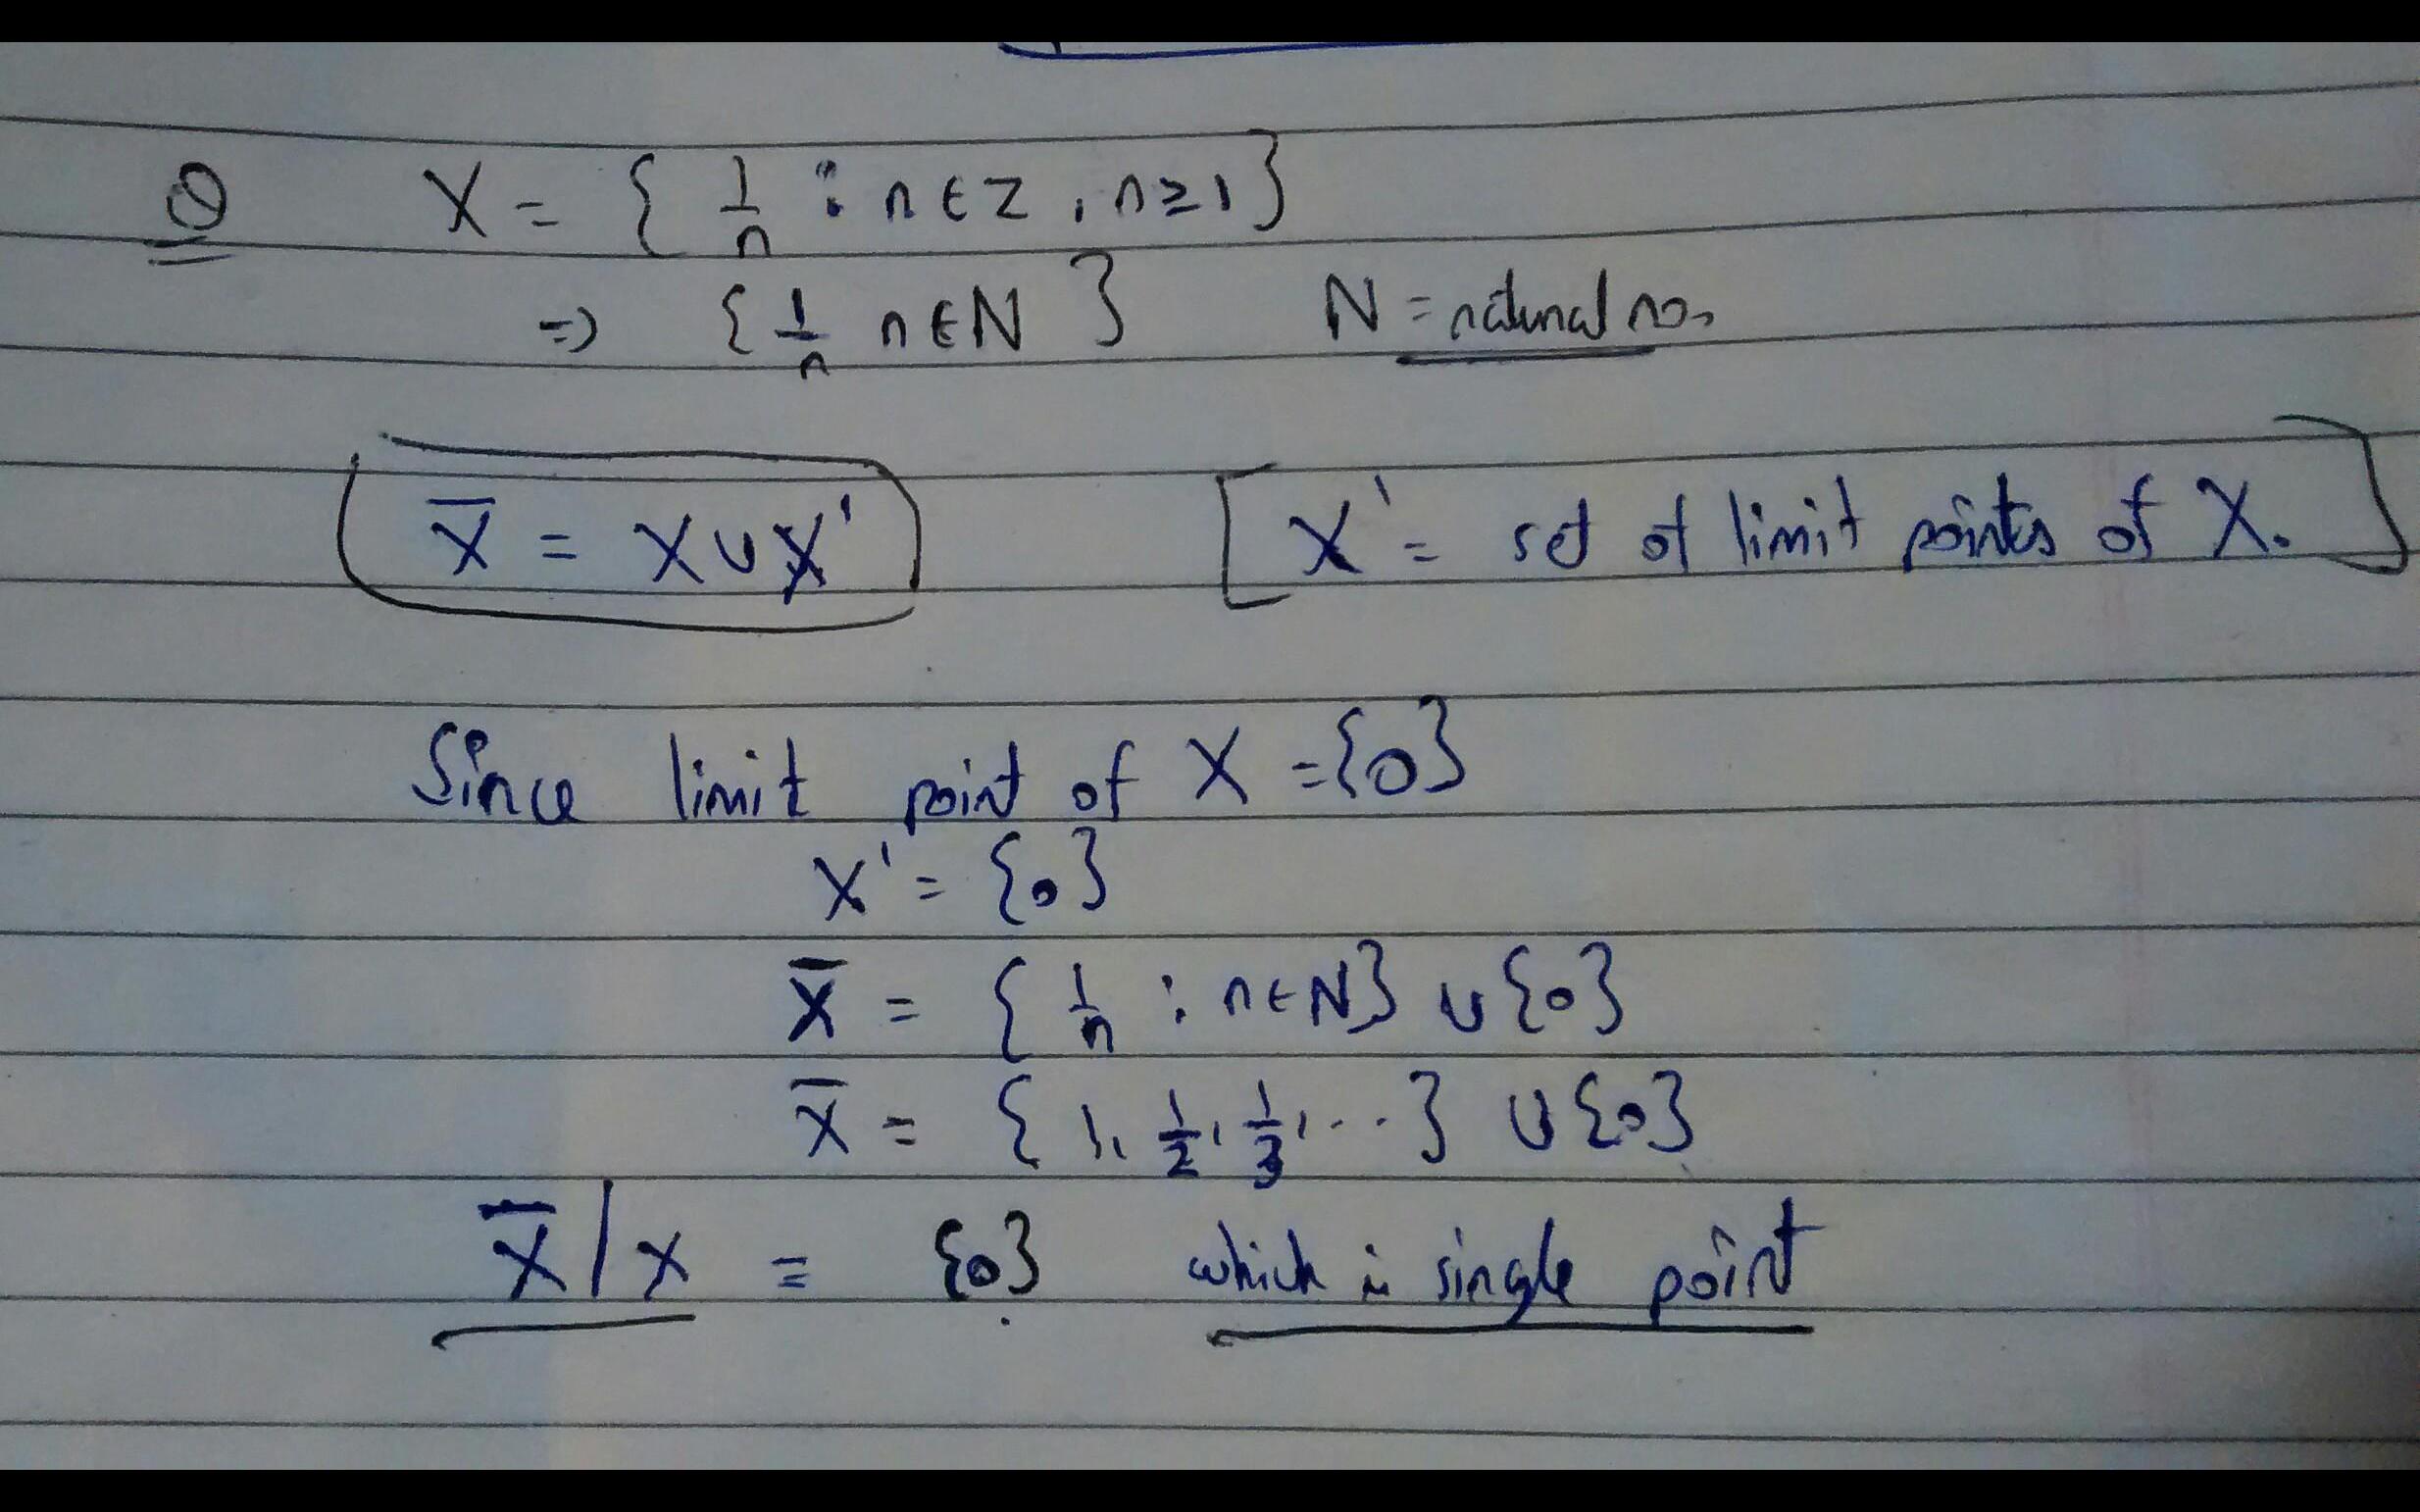 Q X = { 1/n : n ∈ Z , n ≥ 1 }
=> { 1/n n ∈ N } N = natural no.
X̄ = X ∪ X' [ X' = set of limit points of X. ]
Since limit point of X = {0}
X' = {0}
X̄ = { 1/n : n ∈ N } ∪ {0}
X̄ = { 1, 1/2, 1/3, ... } ∪ {0}
X̄ / X = {0} which is single point